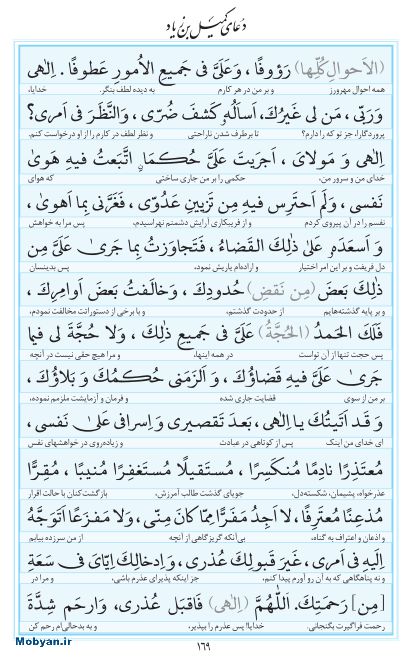 دعای کمیل بن زیاد
(الاَحوالِ كُلِّها) رَؤوفًا ، وَعَلَىَّ فى جَميعِ الاُمورِ عَطوفًا . اِلٰهى
همه احوال مهرورز و بر من در هر کارم به دیده لطف بنگر. خدایا،
وَرَبّى ، مَن لى غَيرُكَ، اَسأَلُهُ كَشفَ ضُرّى ، وَالنَّظَرَ فى اَمرى؟
پروردگارا، جز تو که را دارم؟ تا برطرف شدن ناراحتی و نظر لطف در کارم را از او درخواست کنم.
اِلٰهى وَ مَولاىَ ، اَجرَيتَ عَلَىَّ حُكمًا، اِتَّبَعتُ فيهِ هَوىٰ
خدای من و سرور من، حکمی را بر من جاری ساختی که هوای
نَفسى ، وَلَم اَحتَرِس فيهِ مِن تَزيينِ عَدُوّى ، فَغَرَّنى بِما اَهوىٰ ،
نفسم را در آن پیروی کردم و از فریبکاری آرایش دشمنم نهراسیدم، پس مرا به خواهش
وَ اَسعَدَهُ عَلىٰ ذٰلِكَ القَضاءُ ، فَتَجاوَزتُ بِما جَرىٰ عَلَىَّ مِن
دل فریفت و بر این امر اختیار و اراده‌ام یاریش نمود، پس بدینسان
ذٰلِكَ بَعضَ (مِن نَقضِ) حُدودِكَ ، وَخالَفتُ بَعضَ اَوامِرِكَ ،
و بر پایه گذشته‌هایم از حدودت گذشتم، و با برخی از دستوراتت مخالفت نمودم،
فَلَكَ الحَمدُ (الحُجَّةُ) عَلَىَّ فى جَميعِ ذٰلِكَ ، وَلا حُجَّةَ لى فيما
پس حجت تنها از آن توست در همه اینها، و مرا هیچ حقی نیست در آنچه
جَرىٰ عَلَىَّ فيهِ قَضاؤُكَ ، وَ اَلزَمَنى حُكمُكَ وَ بَلاؤُكَ ،
بر من از سوی قضایت جاری شده و فرمان و آزمایشت ملزمم نموده،
وَ قَد اَتَيتُكَ يا اِلٰهى، بَعدَ تَقصيرى وَاِسرافى عَلىٰ نَفسى ،
ای خدای من اینک پس از کوتاهی در عبادت و زیاده‌روی در خواهشهای نفس
مُعتَذِرًا نادِمًا مُنكَسِرًا ، مُستَقيلًا مُستَغفِرًا مُنيبًا ، مُقِرًّا
عذرخواه، پشیمان، شکسته‌دل، جویای گذشت طالب آمرزش، بازگشت‌کنان با حالت اقرار
مُذعِنًا مُعتَرِفًا ، لا اَجِدُ مَفَرًّا مِمّا كانَ مِنّى، وَلا مَفزَعًا اَتَوَجَّهُ
و اذعان و اعتراف به گناه، بی‌آنکه گریزگاهی از آنچه از من سرزده بیابم
اِلَيهِ فى اَمرى، غَيرَ قَبولِكَ عُذرى، وَ اِدخالِكَ اِيّاىَ فى سَعَةِ
و نه پناهگاهی که به آن رو آورم پیدا کنم، جز اینکه پذیرای عذرم باشی، و مرا در
[مِن] رَحمَتِكَ. اَللّٰهُمَّ (اِلٰهى) فَاقبَل عُذرى، وَارحَم شِدَّةَ
رحمت فراگیرت بگنجانی. خدایا! پس عذرم را بپذیر، و به بدحالی‌ام رحم کن
۱۶۹
Mobyan.ir